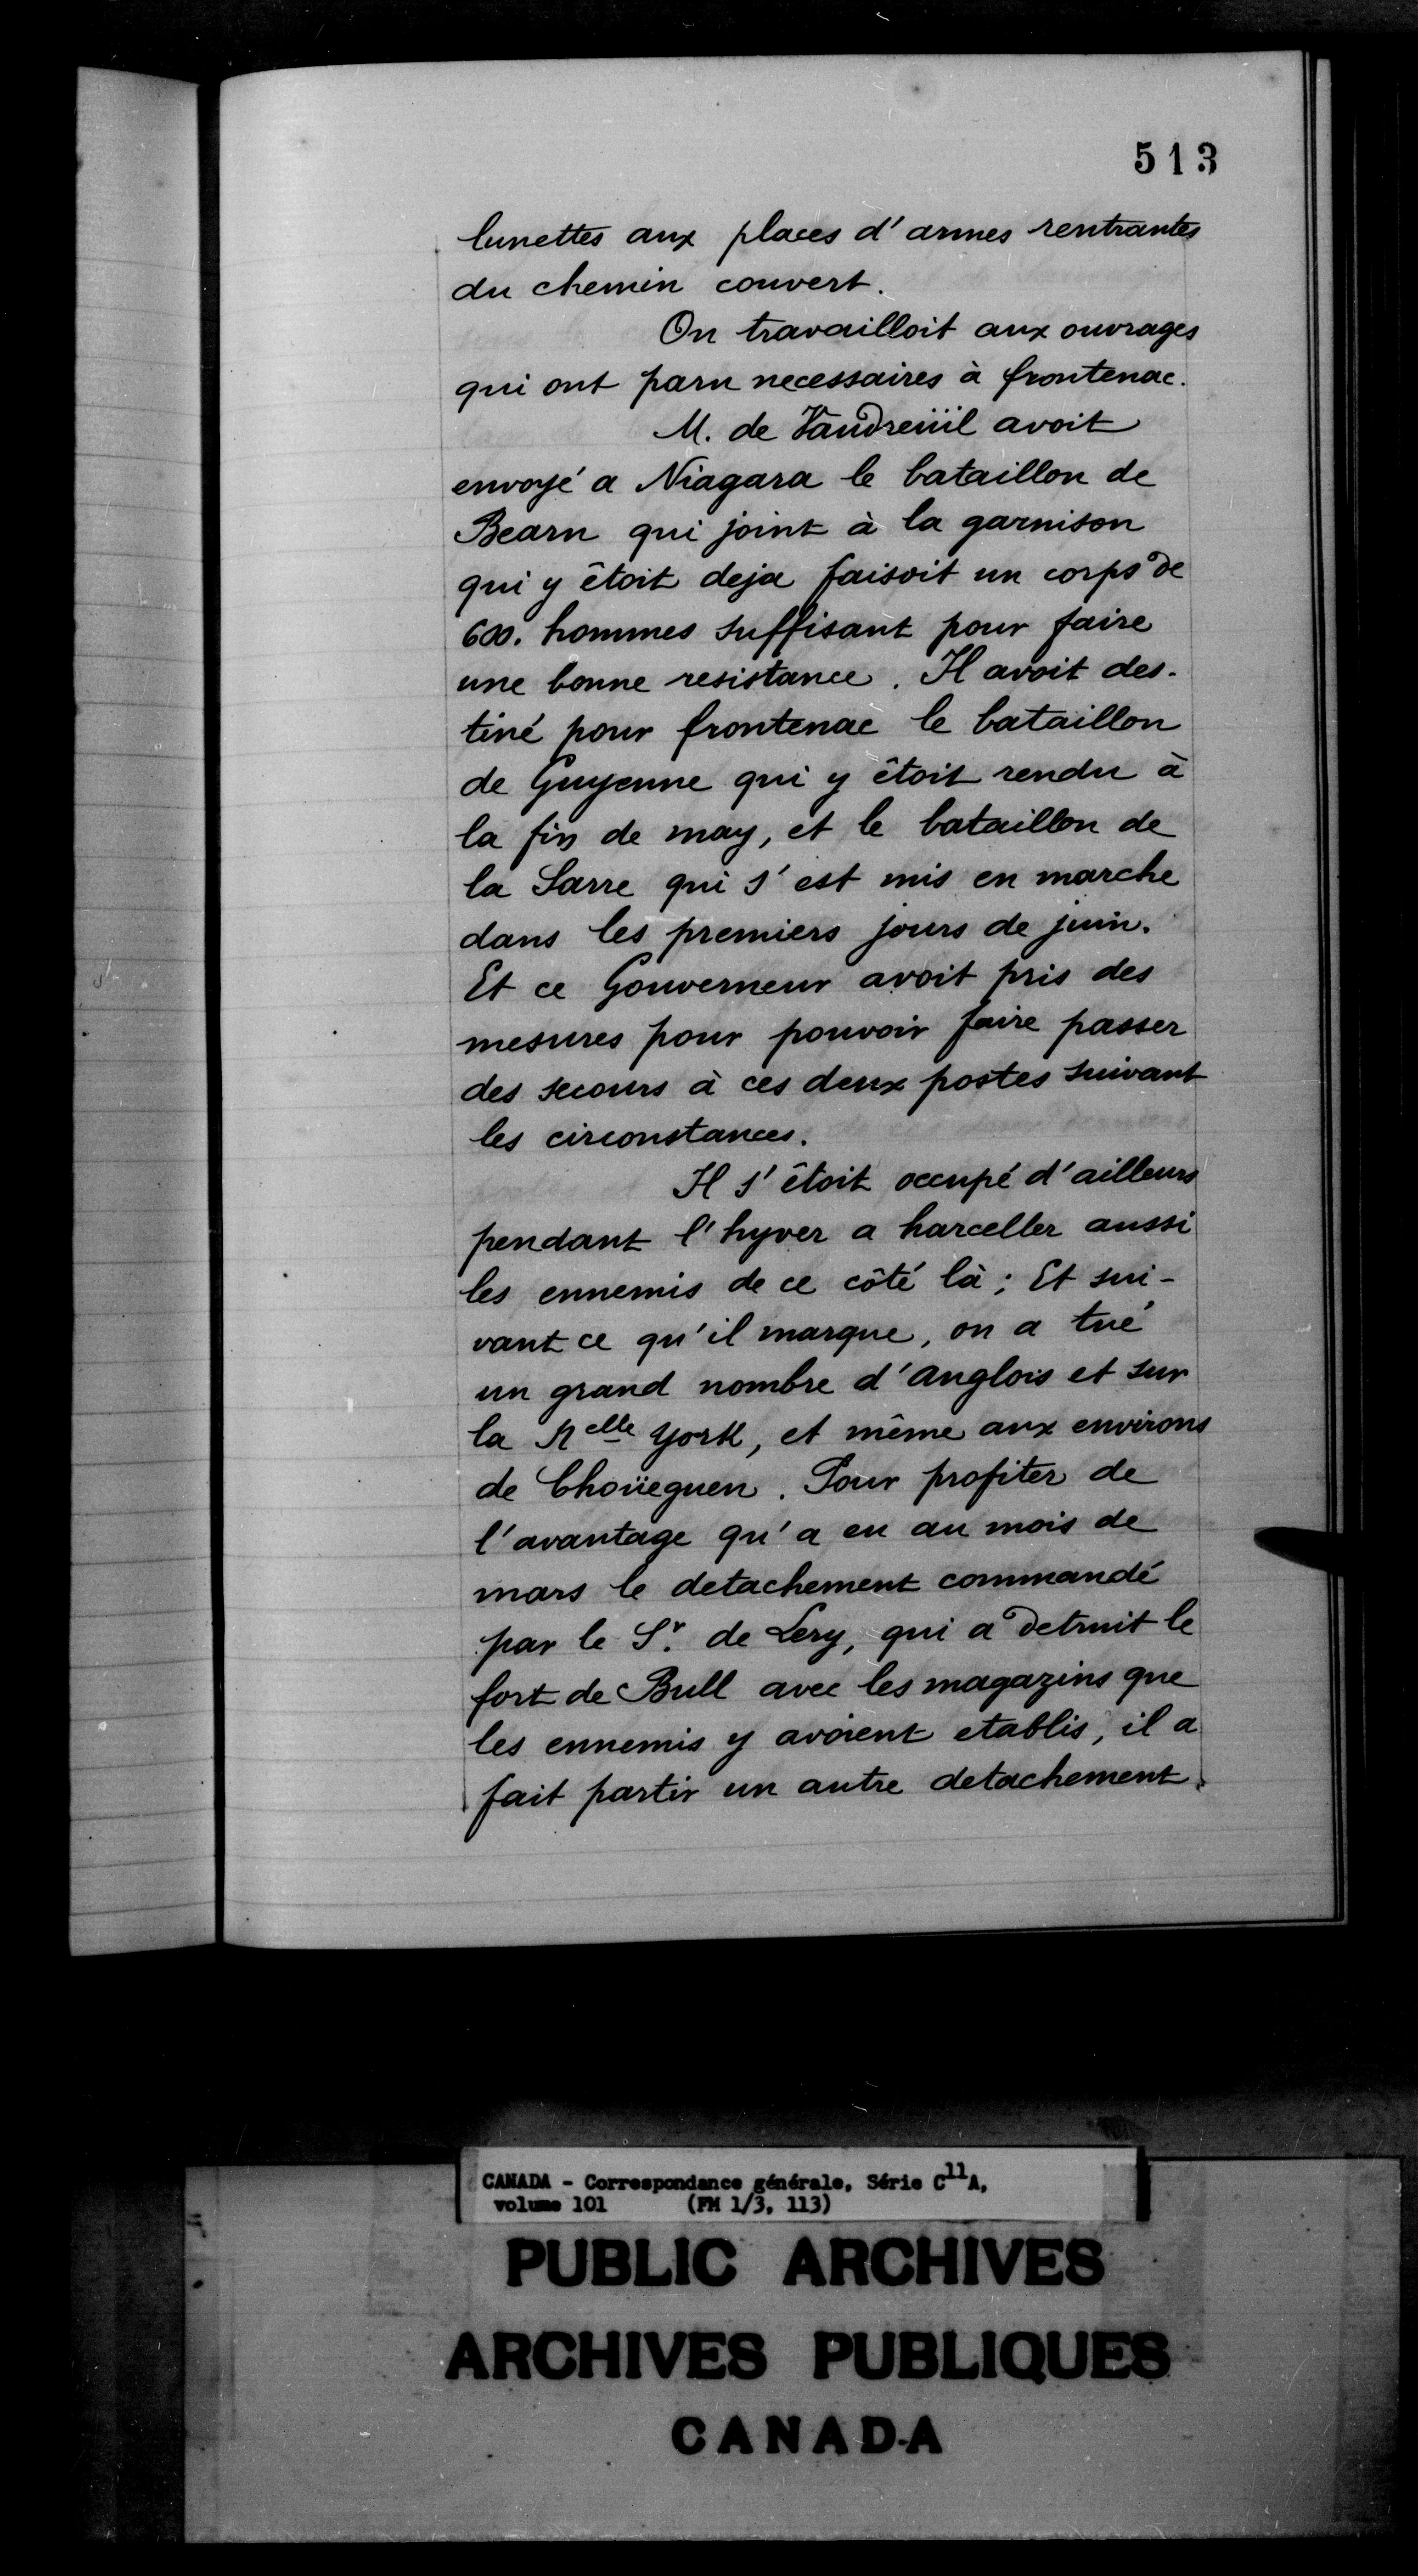 513
lunettes aux places d'armes rentrantes
du chemin couvert.
On travailloit aux ouvrages
qui ont paru necessaires à frontenac.
M. de Vaudreüil avoit
envoyé a Niagara le bataillon de
Bearn qui joint à la garnison
qui y êtoit deja faisoit un corps de
600. hommes suffisant pour faire
une bonne resistance. Il avoit des-
tiné pour frontenac le bataillon
de Guyenne qui y êtoit rendu à
la fin de may, et le bataillon de
la Sarre qui s'est mis en marche
dans les premiers jours de juin.
Et ce Gouverneur avoit pris des
mesures pour pouvoir faire passer
des secours à ces deux postes suivant
les circonstances.
Il s'êtoit occupé d'ailleurs
pendant l'hyver a harceller aussi
les ennemis de ce côté là; Et sui-
vant ce qu'il marque, on a tué
un grand nombre d'anglois et sur
la Nelle York, et même aux environs
de Choüeguen. Pour profiter de
l'avantage qu'a eu au mois de
mars le detachement commandé
par le Sr. de Lery, qui a detruit le
fort de Bull avec les magazins que
les ennemis y avoient etablis, il a
fait partir un autre detachement
CANADA - Correspondance générale, Série C11A,
volume 101 (FM 1/3, 113)
PUBLIC ARCHIVES
ARCHIVES PUBLIQUES
CANADA